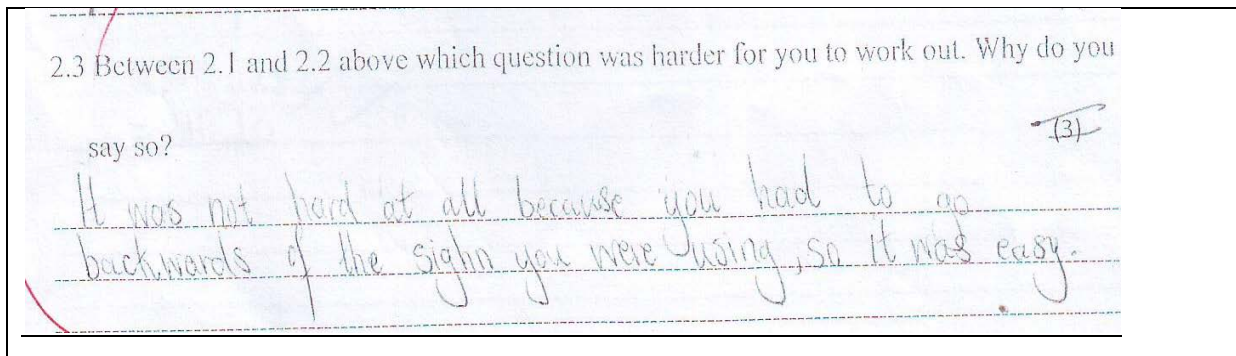 2.3 Between 2.1 and 2.2 above which question was harder for you to work out. Why do you
say so?
(3)
It was not hard at all because you had to go
backwards of the sighn you were using, so it was easy.